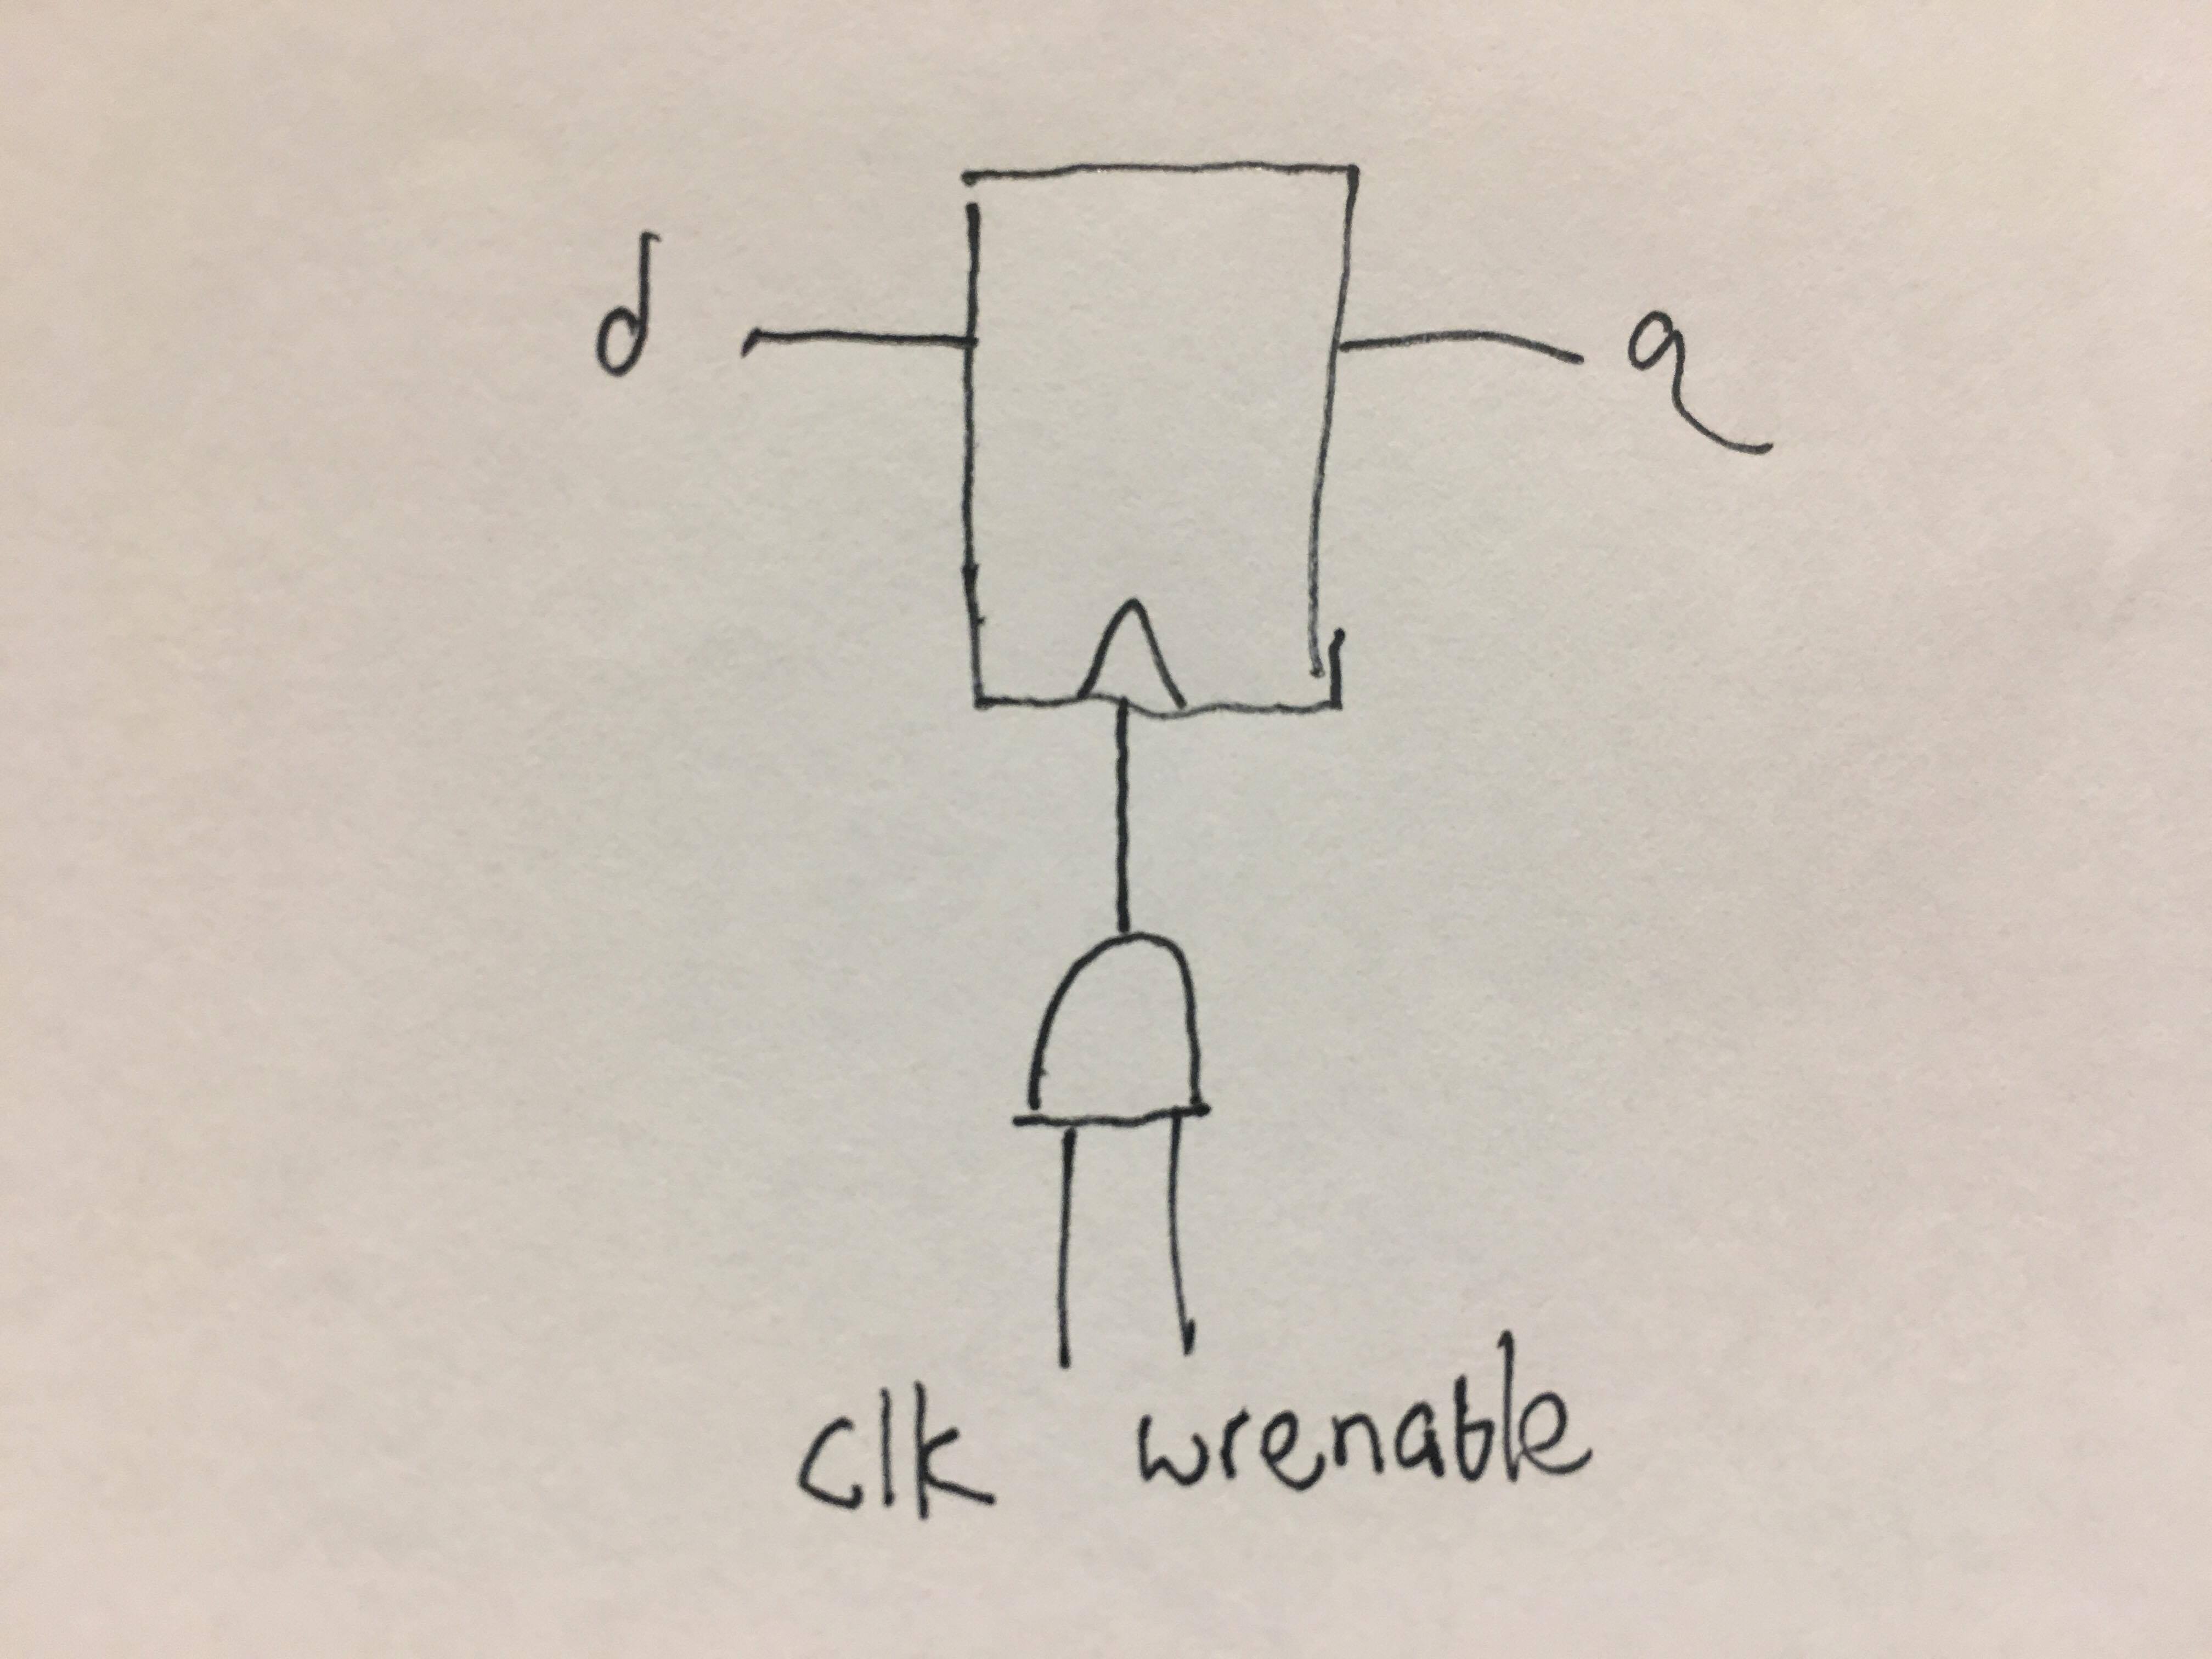 d
q
clk wrenable